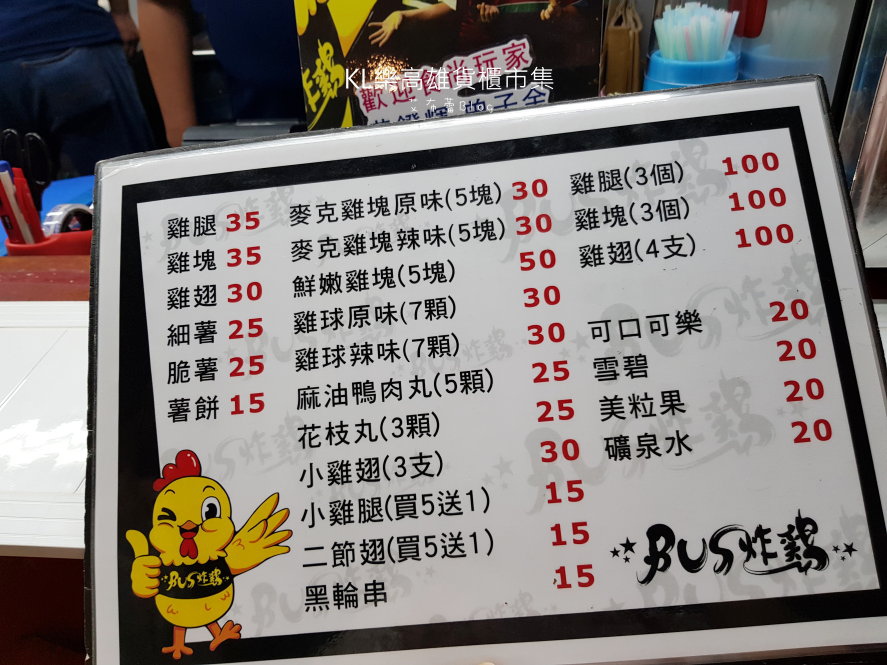 KL樂高雄貨櫃市集
Blog
歡迎食尚玩家
雞腿 35
雞塊 35
雞翅 30
細薯 25
脆薯 25
薯餅 15
麥克雞塊原味(5塊) 30
麥克雞塊辣味(5塊) 30
鮮嫩雞塊(5塊) 50
雞球原味(7顆) 30
雞球辣味(7顆) 30
麻油鴨肉丸(5顆) 25
花枝丸(3顆) 25
小雞翅(3支) 30
小雞腿(買5送1) 15
二節翅(買5送1) 15
黑輪串 15
雞腿(3個) 100
雞塊(3個) 100
雞翅(4支) 100
可口可樂 20
雪碧 20
美粒果 20
礦泉水 20
BUS炸雞
BUS炸雞